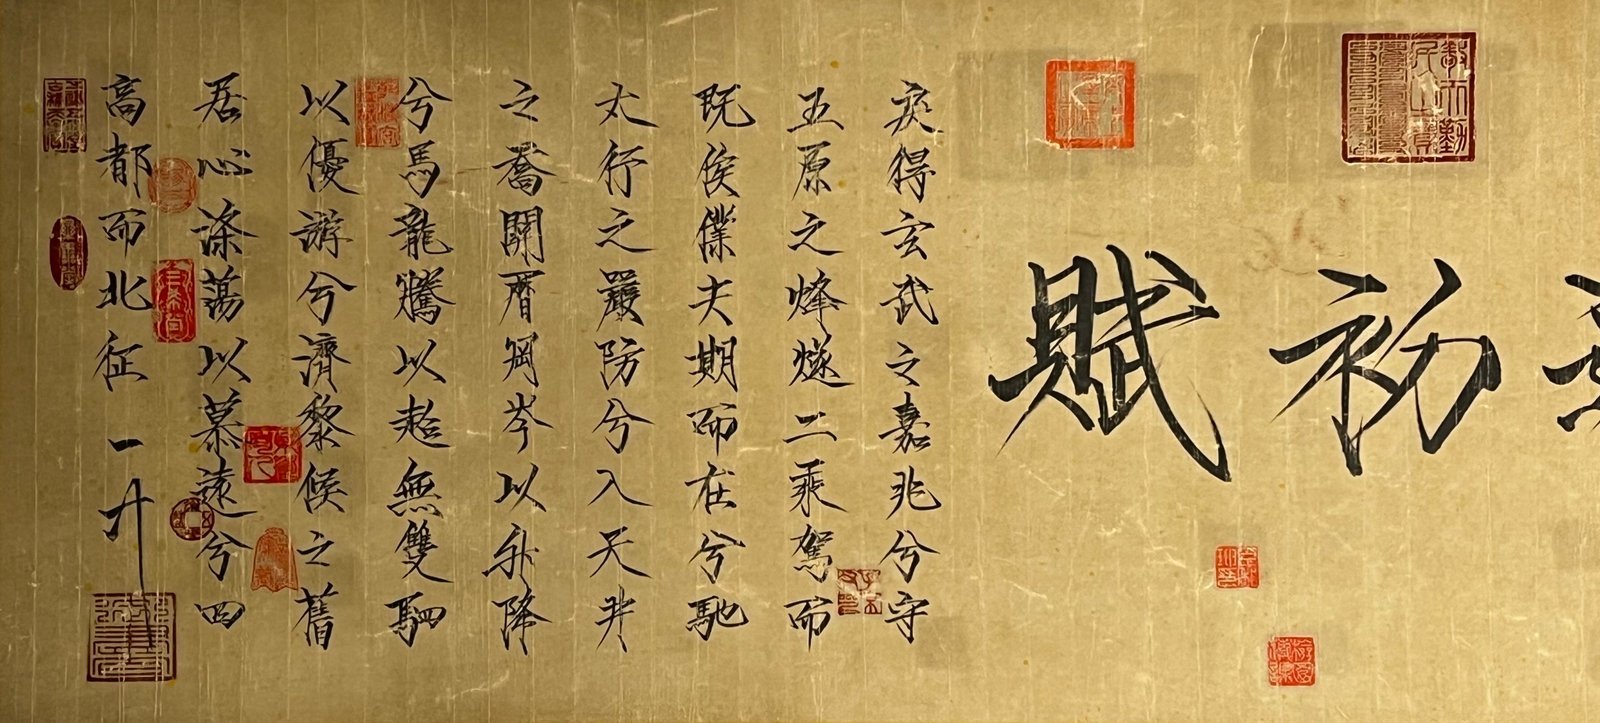 初賦
戾得玄武之嘉兆兮守
五原之烽燧二乘駕而
既俟僕夫期而在兮馳
太行之嚴防兮入天井
之喬關曆岡岑以升降
兮馬龍騰以超無雙駟
以優游兮濟黎候之舊
居心滌蕩以慕遠兮四
高都而北征 一升